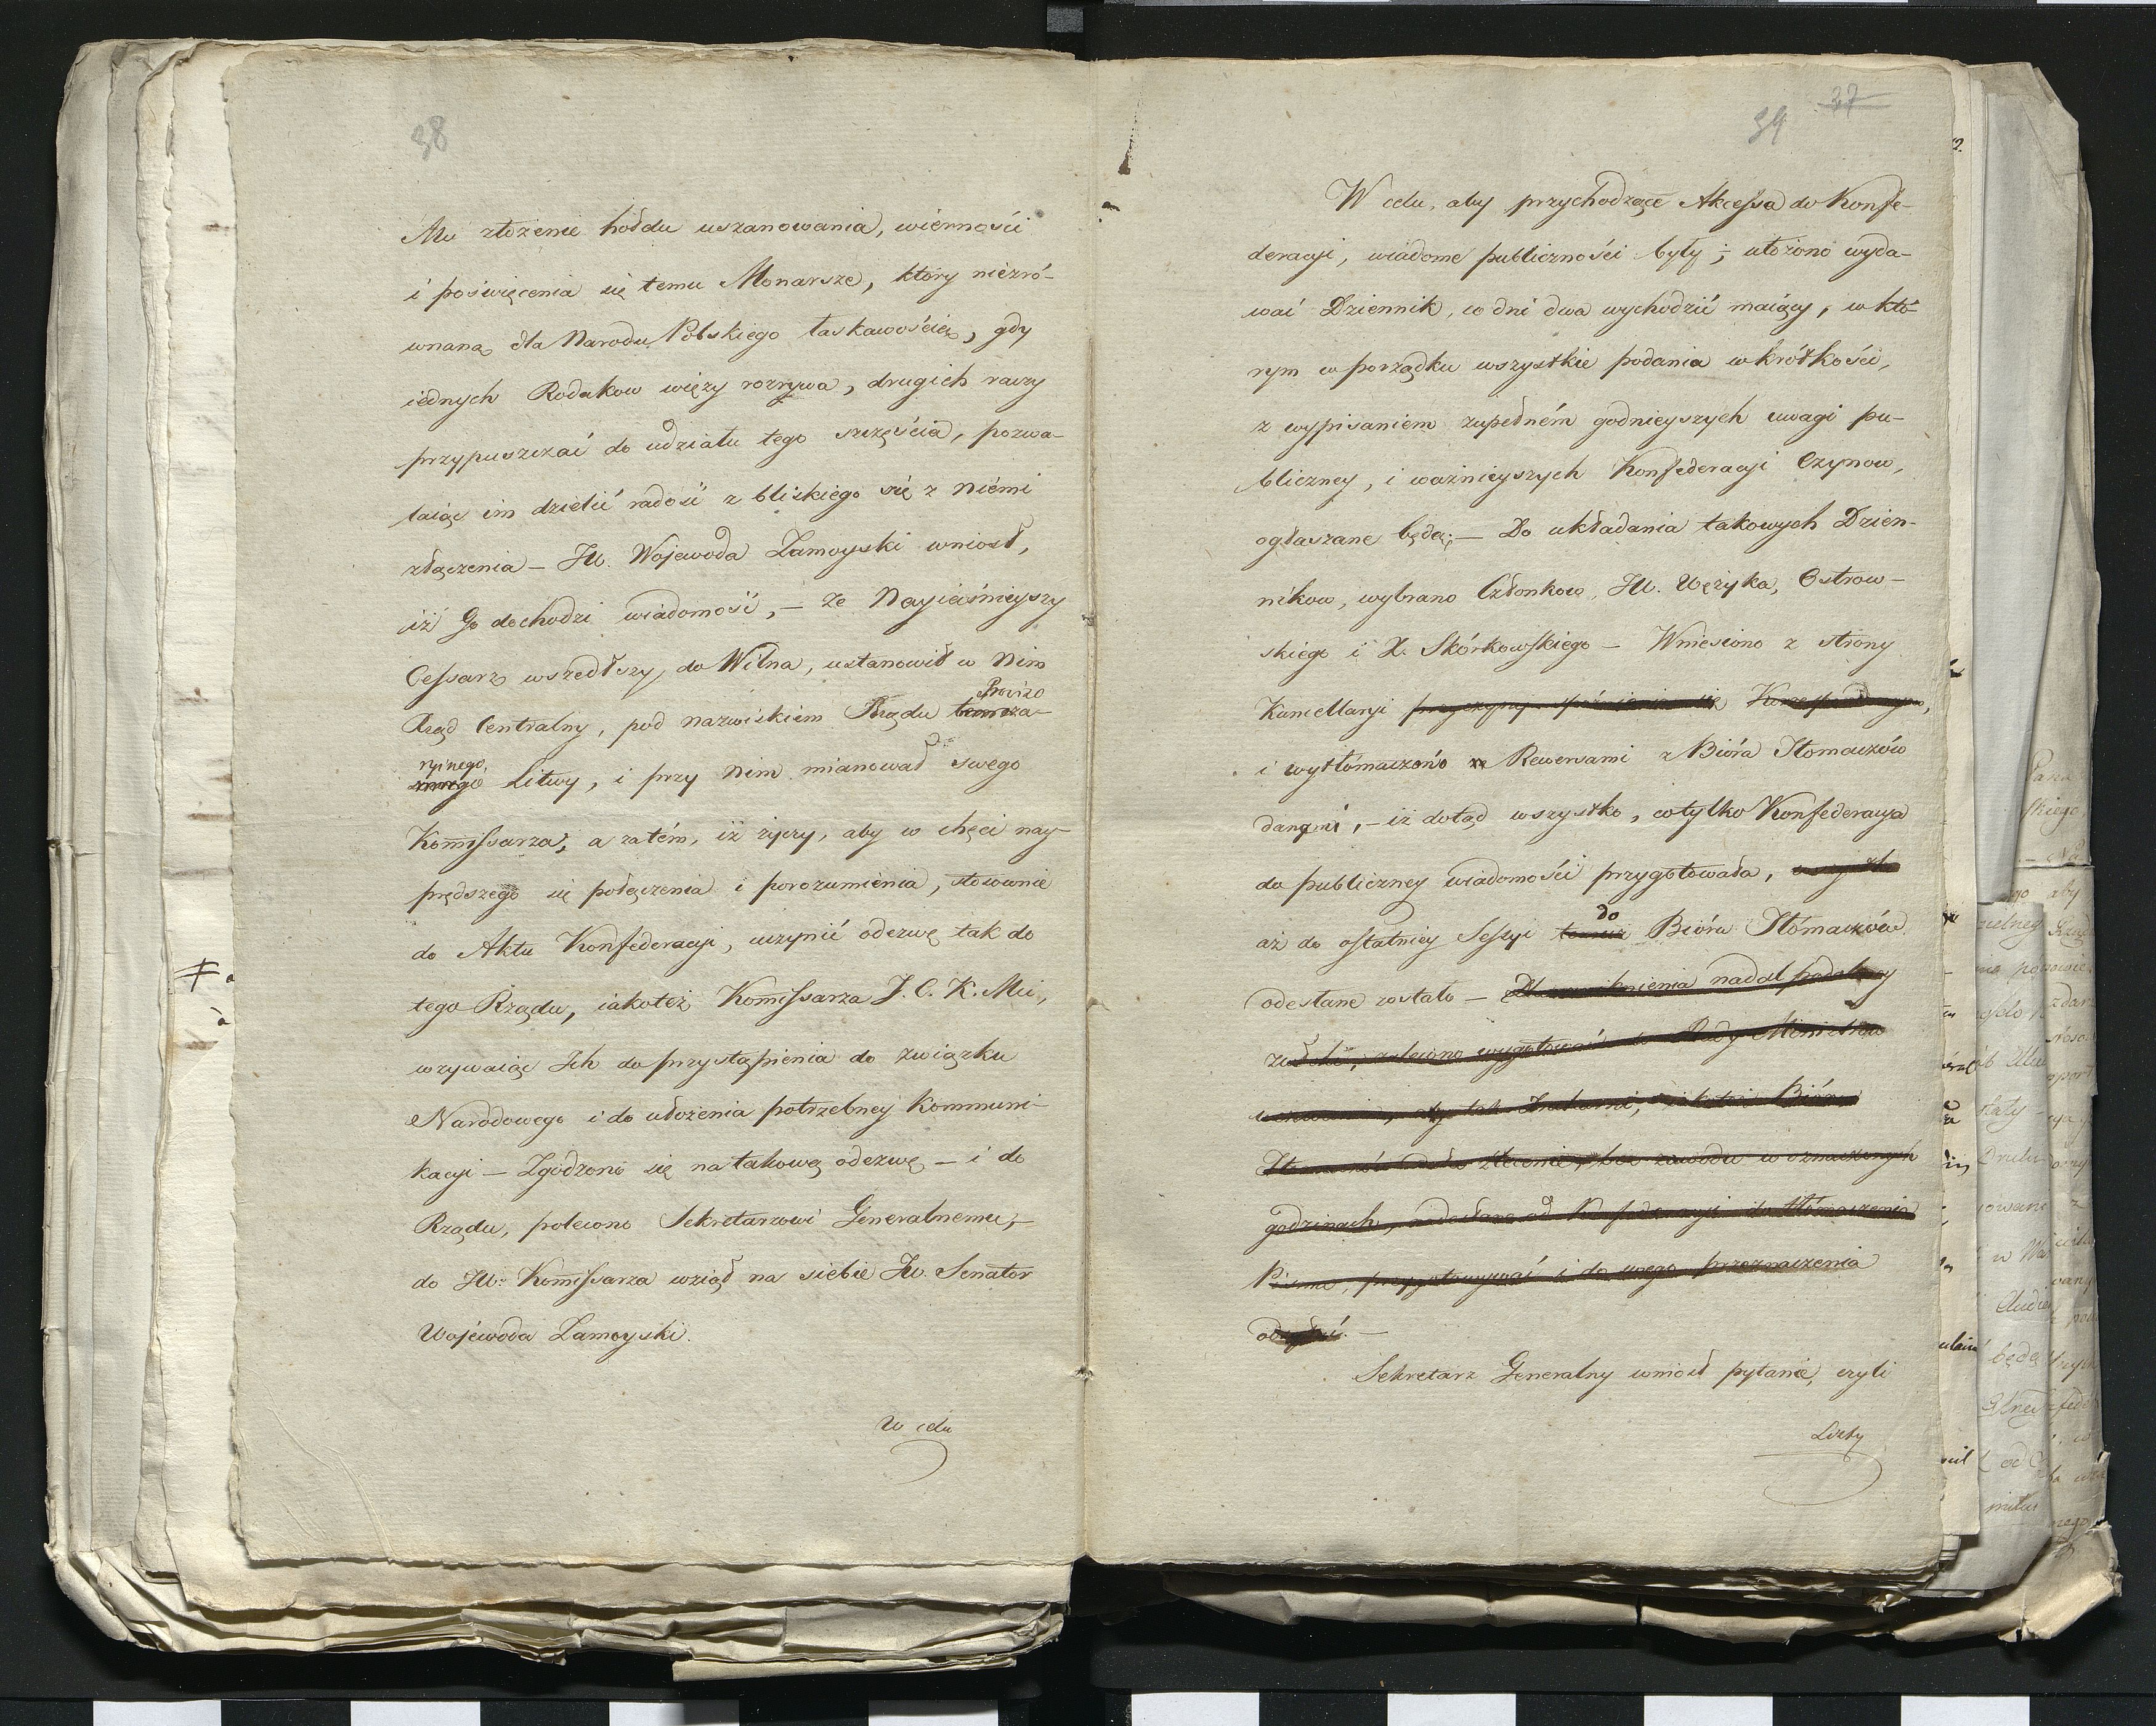 38
Mu złożenie hołdu uszanowania, wierności
i poświęcenia się temu Monarsze, który niezró-
wnaną dla Narodu Polskiego łaskawością, gdy
iednych Rodakow więzy rozrywa, drugich raczy
przypuszczać do udziału tego szczęścia, pozwa-
laiąc im dzielić radość z bliskiego się z niémi
złączenia – JW. Wojewoda Zamoyski wniosł,
iż Go dochodzi wiadomość, – że Nayiaśnieyszy
Cessarz wszedłszy do Wilna, ustanowił w nim
Prowizo
Rząd Centralny, pod nazwiskiem Rządu tymcza-
rycznego,
Litwy, i przy nim mianował swego
Kommissarza; a zatém, iż życzy, aby w chęci nay-
prędszego się połączenia i porozumienia, stosownie
do Aktu Konfederacyi, uczynić odezwę tak do
tego Rządu, iakoteż Kommissarza J. C. K. Mci,
wzywaiąc Ich do przystąpienia do związku
Narodowego i do ułożenia potrzebney kommuni-
kacyi – Zgodzono się na takową odezwę – i do
Rządu, polecono Sekretarzowi Generalnemu, –
do JW. Kommissarza wziął na siebie JW. Senator
Wojewoda Zamoyski.
W celu
39 37
W celu, aby przychodzące Akcessa do Konfe-
deracyi, wiadome publiczności były; ułożono wyda-
wać Dziennik, co dni dwa wychodzić maiący, w któ-
rym w porządku wszystkie podania w krótkości,
z wypisaniem zupełném godnieyszych uwagi pu-
bliczney, i ważnieyszych Konfederacyi Czynow,
ogłaszane będą; – Do układania takowych Dzien-
nikow, wybrano Członkow, JW. Wężyka, Ostrow-
skiego i X. Skórkowskiego – Wniesiono z strony
Kancellaryi
i wytłómaczono Rewersami z Bióra Tłomaczów
danymi, – iż dotąd wszystko, co tylko Konfederacya
do publiczney wiadomości przygotowała,
do
aż do ostatniey Sessyi Bióra Tłómaczów
odesłane zostało – nadal
zaleciono wygotować Rady Ministrów
Bióra
zlecenie, bez zawodu w oznaczonych
godzinach, od do tłómaczenia
Pisma, przygotowywać i do swego przeznaczenia
Sekretarz Generalny wniosł pytanie, czyli
Listy